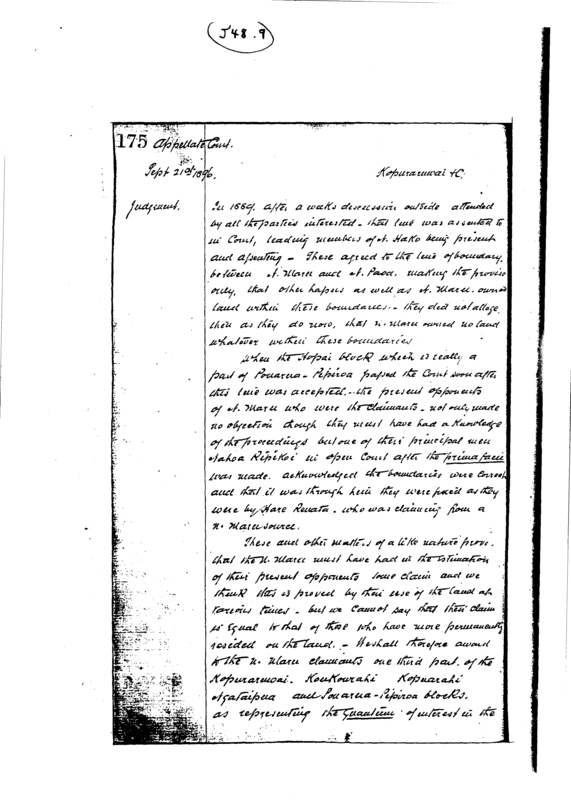 (J48.9)
175 Appellate Court.
Sept 21st 1896. Kopuraruwai &C.
Judgment. In 1889, after a weeks discussion outside attended
by all the parties interested - that line was assented to
in Court, leading members of N. Hako being present
and assenting - These agreed to the line of boundary,
between N. Maru and N. Paoa. making the proviso
only, that other hapus as well as N. Maru. owned
land within these boundaries. - they did not allege
then as they do now, that N. Maru owned no land
whatever within these boundaries
When the Hopai block which is really a
part of Pouarua - Pipiroa passed the Court soon after
this line was accepted. - the present opponents
of N. Maru who were the Claimants - not only made
no objection though they must have had a Knowledge
of the proceedings but one of their principal men
Nahoa Ripikoi in open Court after the prima facie
was made. acknowledged the boundaries were correct
and that it was through him they were fixed as they
were by Hare Renata. who was claiming from a
N. Maru source.
These and other matters of a like nature prove.
that the N. Maru must have had in the estimation
of their present opponents some claim and we
think this is proved by their use of the land at
various times - but we cannot say that their claim
is equal to that of those who have more permanently
resided on the land. - We shall therefore award
to the N. Maru claimants one third part. of the
Kopuraruwai. Koukourahi Kopuarahi
Ngataipua and Pouarua - Pipiroa blocks.
as representing the Quantum of interest in the